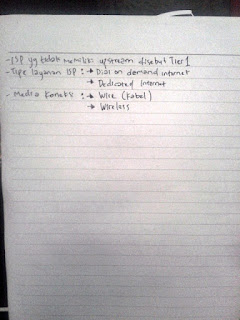 - ISP yg tidak memiliki upstream disebut Tier 1
- Tipe layanan ISP : → Dial on demand internet
→ Dedicated Internet
- Media Koneksi : → Wire (Kabel)
→ Wireless